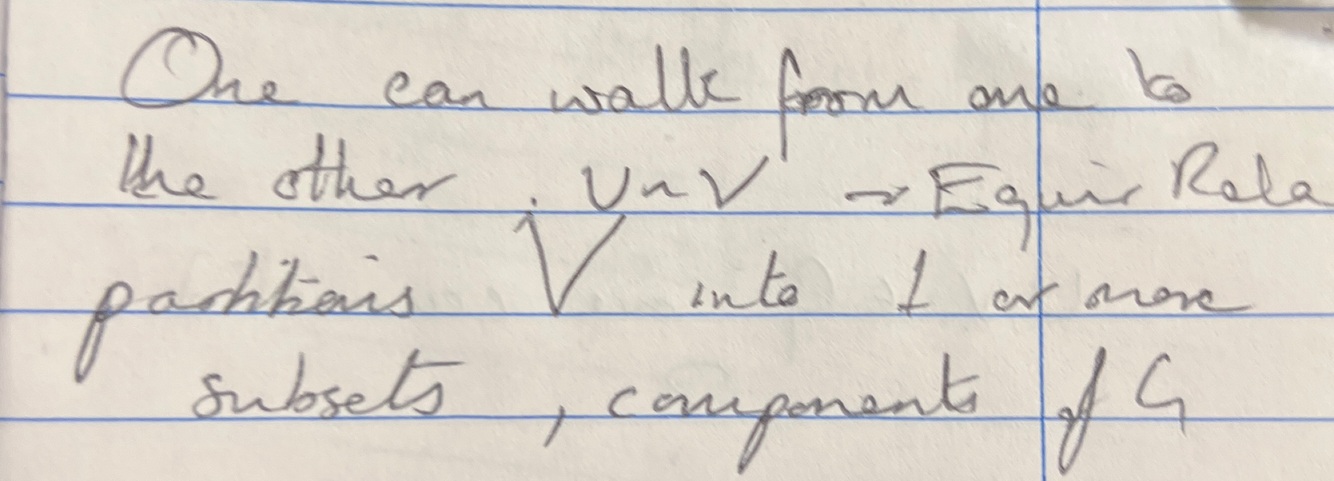 One can walk from one to
the other . U ~ V → Equiv Rela
partitions V into 1 or more
subsets , components of G